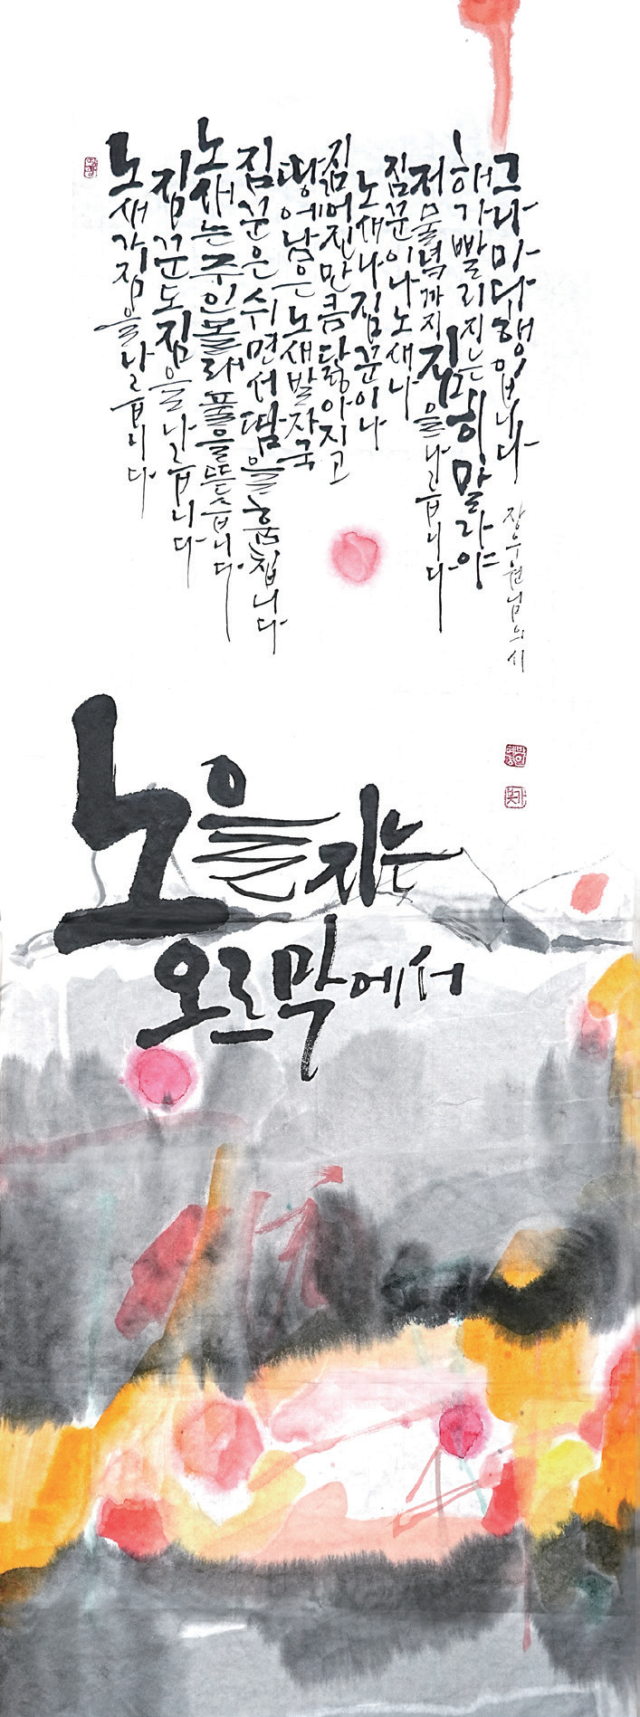 노새가 짐을 나릅니다
짐꾼도 짐을 나릅니다
노새는 주인 몰래 풀을 뜯습니다
짐꾼은 쉬면서 땀을 훔칩니다
땅에 남은 노새 발자국
짊어진 만큼 닳아지고
노새나 짐꾼이나
짐꾼이나 노새나
저물녘까지 짐을 나릅니다
해가 빨리 지는 히말라야
그나마 다행입니다
장우원님의 시
노을 지는
오르막에서